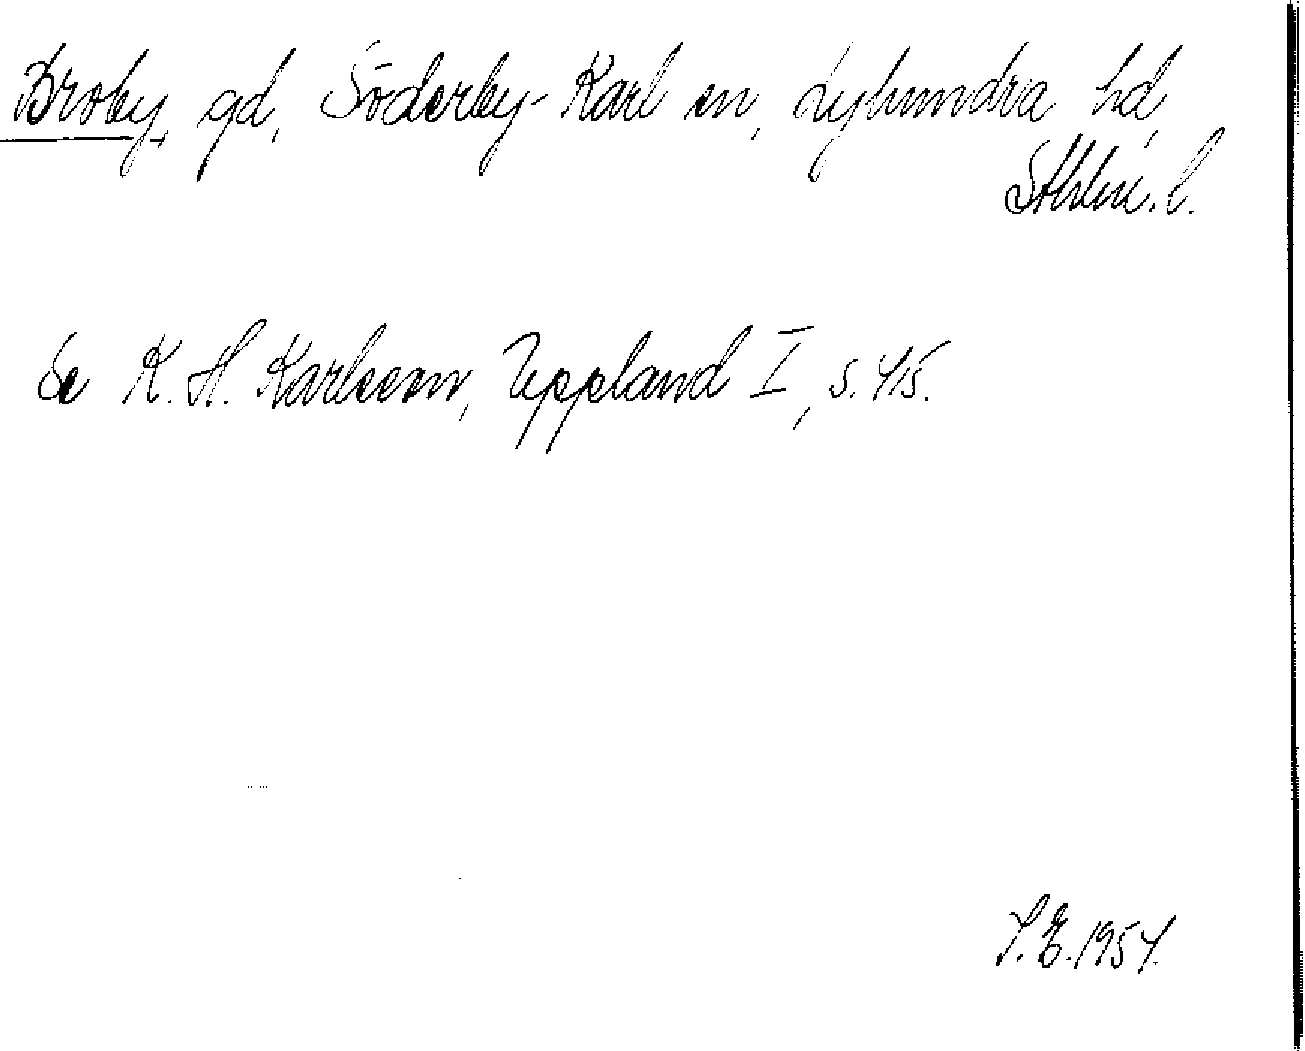 Broby, gd, Söderby-Karl sn, Lyhundra hd,
Sthlms l.
Se K. H. Karlsson, Uppland I, s. 415.
S. E. 1954.